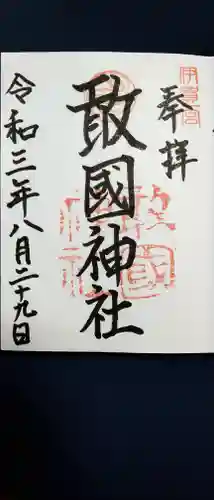 伊賀一宮
奉拝
敢國神社
令和三年八月二十九日